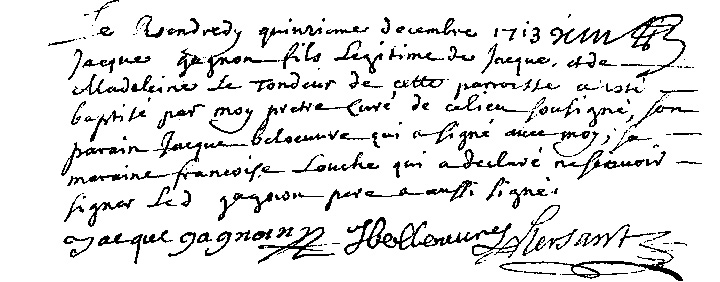 Le Vendredy quinzieme decembre 1713
Jacque gagnon fils Legitime de Jacque, et de
Madeleine Le Tondeur de cette parroisse a esté
baptisé par moy pretre Curé de ce lieu sousigné, son
parain Jacque beloeuvre qui a signé avec moy, sa
maraine francoise Louche qui a declaré ne scavoir
signer Led gagnon pere a aussi signé.
Jacque gagnon JBelleuvre Hersant